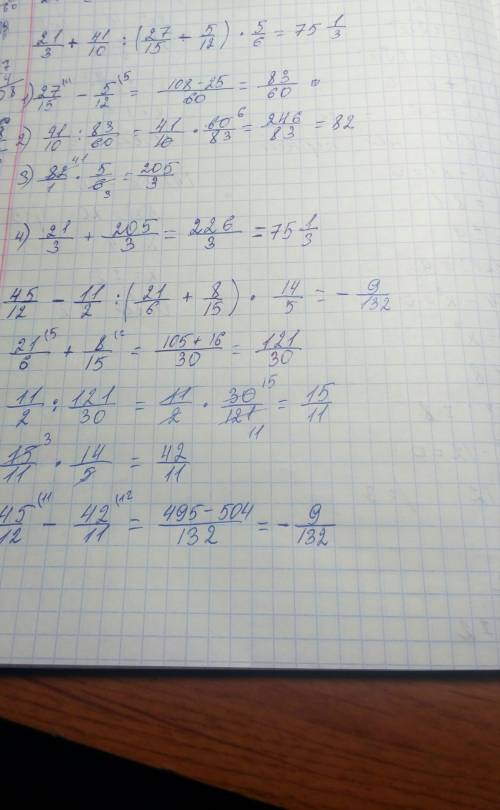 21/3 + 41/10 : (27/15 + 5/12) · 5/6 = 75 1/3
1) 27/15 - 5/12 (5 = 108-25/60 = 83/60
2) 41/10 : 83/60 = 41/10 · 60/83 6 = 246/83 = 82
3) 82/1 41 · 5/6 3 = 205/3
4) 21/3 + 205/3 = 226/3 = 75 1/3
45/12 - 11/2 : (21/6 + 8/15) · 14/5 = - 9/132
21/6 (5 + 8/15 (2 = 105+16/30 = 121/30
11/2 : 121/30 = 11/2 · 30/121 15 11 = 15/11
15/11 3 · 14/5 = 42/11
45/12 (11 - 42/11 (12 = 495-504/132 = - 9/132